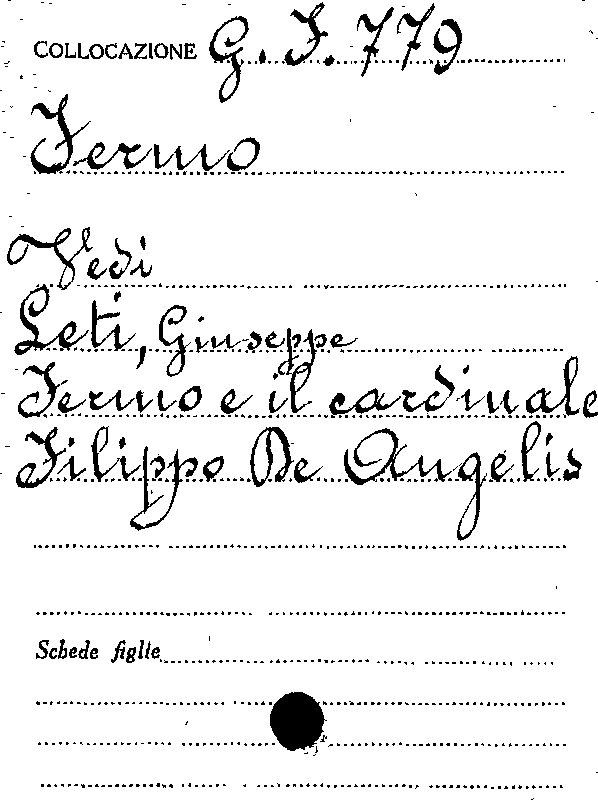 COLLOCAZIONE G. I. 779
Fermo
Vedi
Leti, Giuseppe
Fermo e il cardinale
Filippo De Angelis
Schede figlie